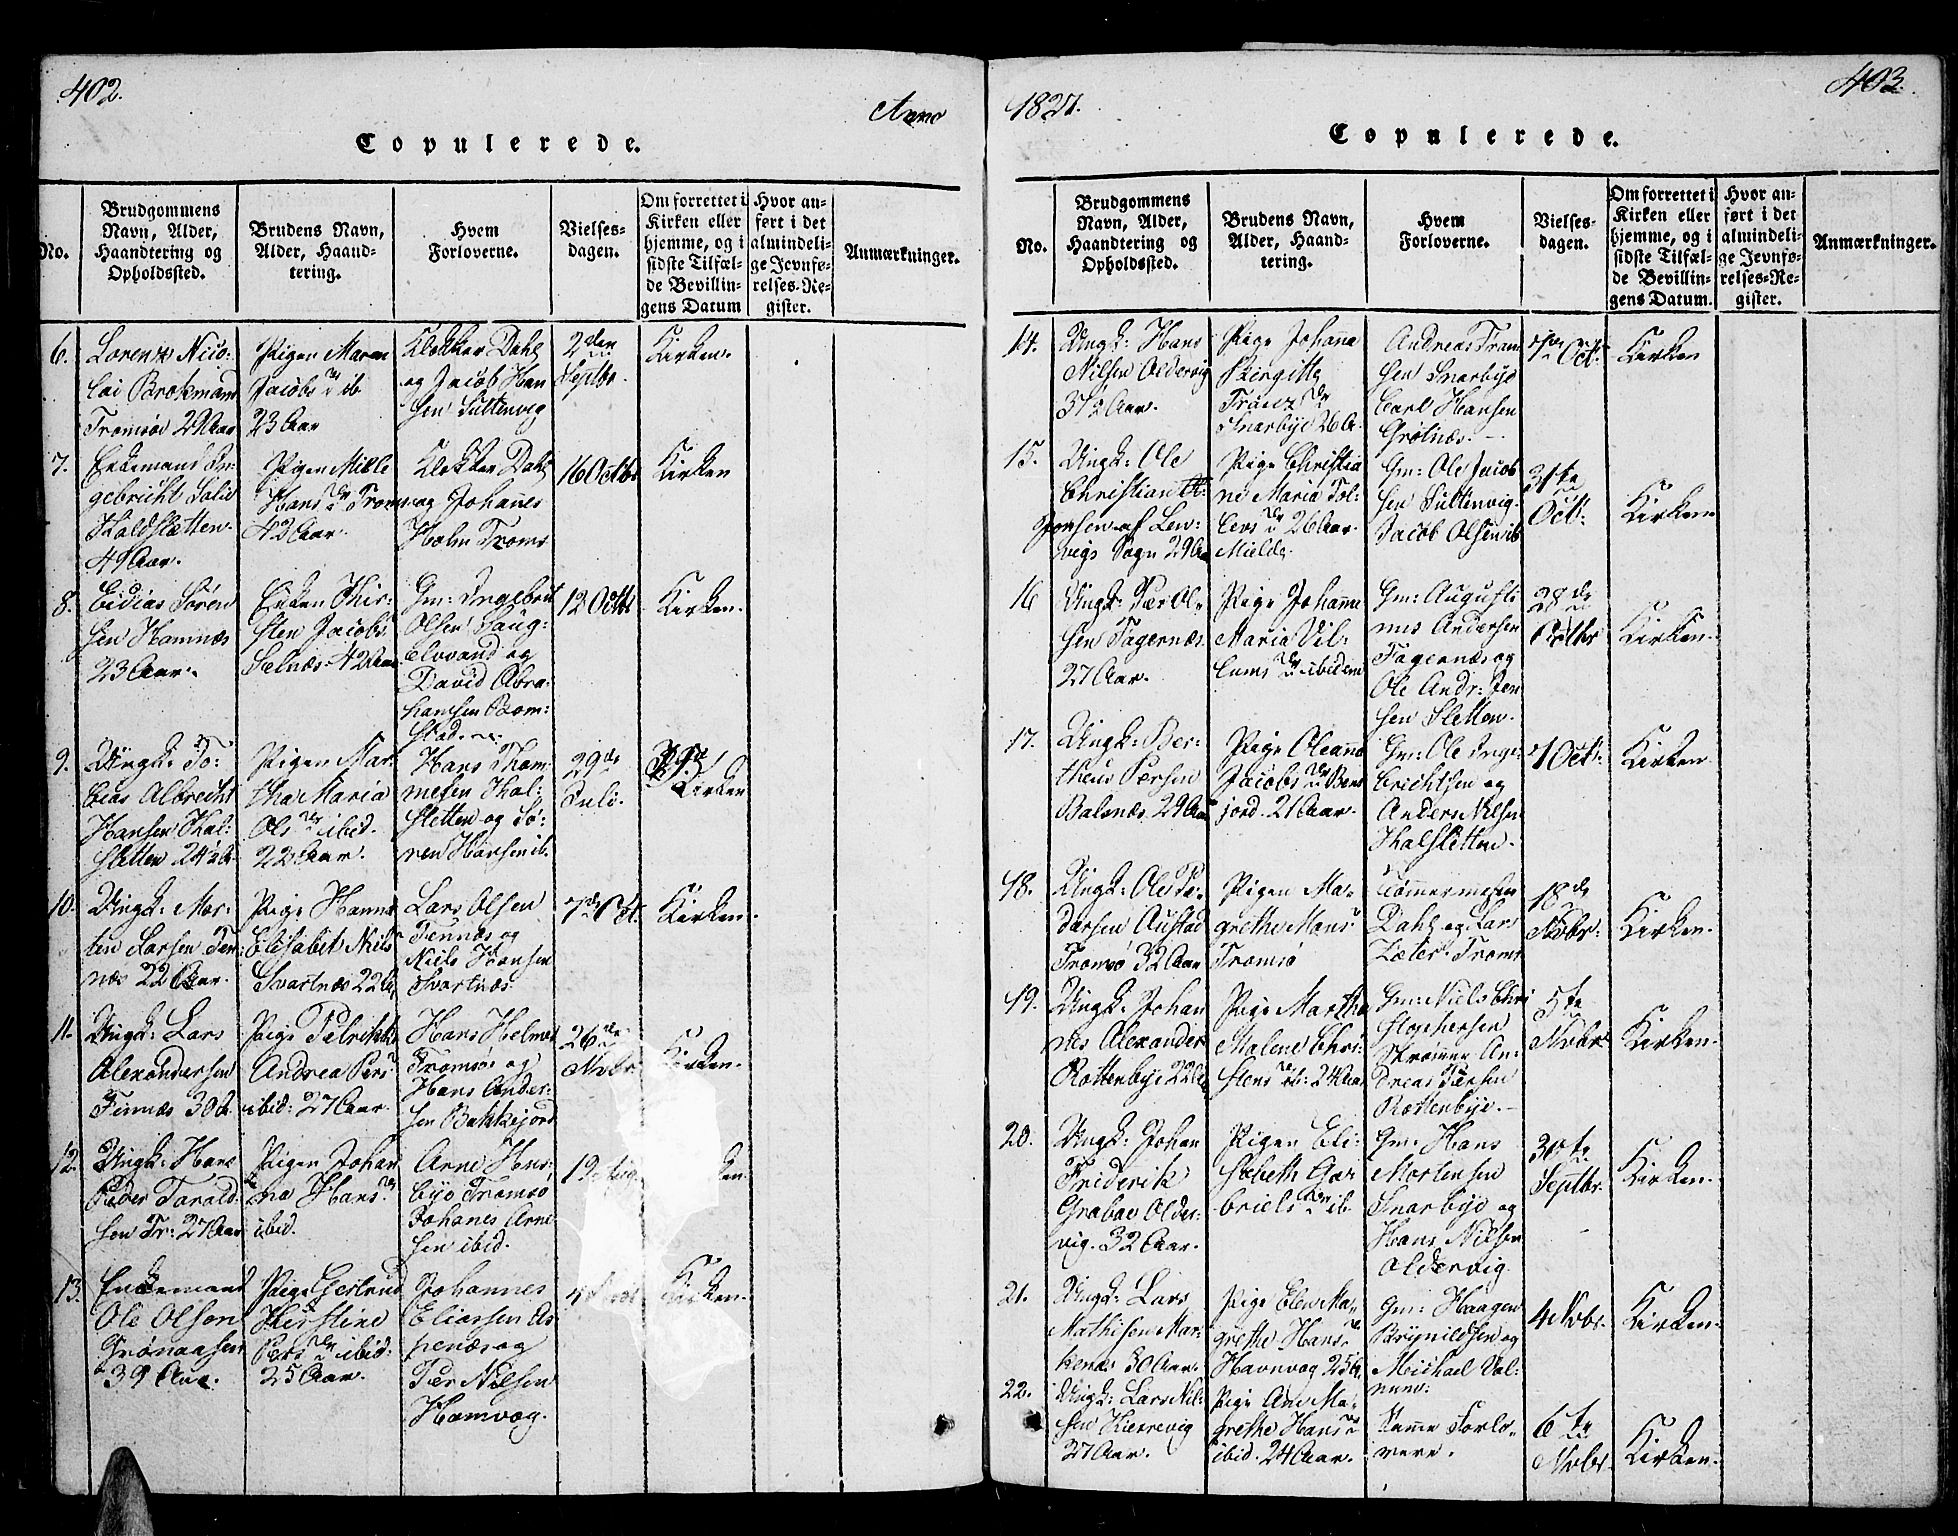 402.
Anno
Copulerede.
No.
Brudgommens
Navn, Alder,
Haandtering og
Opholdssted.
Brudens Navn,
Alder, Haand-
tering.
Hvem
Forloverne.
Vielses-
dagen.
Om forrettet i
Kirken eller
hjemme, og i
sidste Tilfæl-
de Bevillin-
gens Datum
Hvor an-
ført i det
almindeli-
ge Jevnfø-
relses-Re-
gister.
Anmærkninger.
6.
Lorentz Nico-
lai Brokmand
Tromsöe 29 Aar
Pigen Maren
Jacobs dr ib
23 Aar
Klokker Dahl
og Jacob Han
sen Sultenvig
2den
Septbr.
Kirken.
7.
Enkemand In-
gebricht
Kaldsletten
49 Aar.
Pigen
Hans dr Trom
42 Aar.
Klokker Dahl
og Johanes
Holm Troms
16 Octbr
Kirken
8.
Sören
sen Hamnæs
23 Aar.
Enken Kir-
sten Jacobs
Selnæs 42 Aar
Gm: Ingebrict
Olsen
og
David Abra-
hamsen Bom-
stad.
12 Octbr
Kirken.
9.
Ungk: To-
bias Albrecht
Hansen Kal-
sletten 24 Aar
Pigen Mar-
tha Maria
Ols dr ibid.
22 Aar.
Hans Thom-
mesen Kal-
sletten og Sö-
ren Hansen ib.
29de
Juli.
Kirken
10.
Ungk: Mor-
ten Larsen Ten-
næs 22 Aar.
Pige Hanna
Elisabet Niels
Svartnæs 22 A
Lars Olsen
Tennæs og
Niels Hansen
Svartnæs
7de Oct.
Kirken.
11.
Ungk: Lars
Alexandersen
Finnæs 30 A.
Pige Petrikke
Andrea Pers
ibid: 27 Aar.
Hans Helmer
Tromsöe og
Hans Ander-
sen Bakkejord
26de
Novbr.
Kirken.
12.
Ungk: Hans
Peder Tarald-
sen Tr: 27 Aar
Pigen Johan
na Hans dr
ibid.
Arne Hans-
Tromsø
Johanes Arne
sen ibid.
19 Aug
ken.
13.
Enkemand
Ole Olsen
Grønaasen
39 Aar.
Pige Gertrud
Kirstine
Pers dr ibid:
25 Aar.
Johannes
Eliassen As
penæs og
Per Nilsen
Hamvog.
Kirken.
403.
1821.
Copulerede.
No.
Brudgommens
Navn, Alder,
Haandtering og
Opholdssted.
Brudens Navn,
Alder, Haand-
tering.
Hvem
Forloverne.
Vielses-
dagen.
Om forrettet i
Kirken eller
hjemme, og i
sidste Tilfæl-
de Bevillin-
gens Datum.
Hvor an-
ført i det
almindeli-
ge Jevnfø-
relses-Re-
gister.
Anmærkninger.
14.
Ungk: Hans
Nilsen Oldervig
37½ Aar.
Pige Johanna
Birgitte
Frantz dr
Snarbye 26 A.
Andreas Fran
sen Snarbye
Carl Hansen
Grötnæs.
Oct:
Kirken
15.
Ungk: Ole
Christian
af Len-
vigs Sogn 29 Aar
Pige Christia
ne Maria Tol-
levs dr 26 Aar.
Mielde.
Gm: Ole Jacob
sen Sultenvig.
Jacob Olsen ib
31te
Oct:
Kirken
16
Ungk: Per Ol-
sen Fagernæs
27 Aar.
Pige Johanne
Maria Vil-
lums dr ibidem
Gm: Augusti
nus Andersen
Fagernæs og
Ole Andr: Jen
sen Sletten.
28de
Octbr
Kirken.
17.
Ungk: Ber-
theus Persen
Balsnæs. 29 Aar
Pige Oleanna
Jacobs dr Bens
jord. 21 Aar.
Gm: Ole Inge-
brichtsen og
Anders Nilsen
Kalsletten.
7 Oct:
Kirken.
18.
Ungk: Ole Pe-
dersen Austad
Tromsø 32 Aar
Pigen Ma-
grethe Mons
Tromsø
Tömmermesen
Dahl og Lars
Zæter Troms
18de
Febr:
Kirken.
19.
Ungk: Johan
nes Alexander
Rottenbye 22 A
Pige Martha
Malene Chri-
stens dr ib: 24 Aar
Gm: Niels Chri
stophersen
Strømmen An-
dreas Persen
Rottenbye.
5te
Novbr
Kirken.
20.
Ungk: Johan
Friderik
Grabae Older-
vig. 32 Aar.
Pigen Eli-
sabeth Ga-
briels dr ib.
Gm: Hans
Mortensen
Snarbye og
Hans Nilsen
Oldervig.
30te
Septbr.
Kirken.
21.
Ungk: Lars
Mathisen Mar-
kenæs 30 Aar.
Pige Elen Ma-
grethe Hans dr
Havnvog 25 A.
Gm: Haagen
Brynildsen og
Michael Dal-
4 Novbr.
Kirken.
22.
Ungk: Lars Nil-
sen Kierrevig
37 Aar.
Pige Ane Ma-
grethe Hans dr
ibid. 24 Aar.
Samme Forlo-
vere.
6te
Novbr.
Kirken.